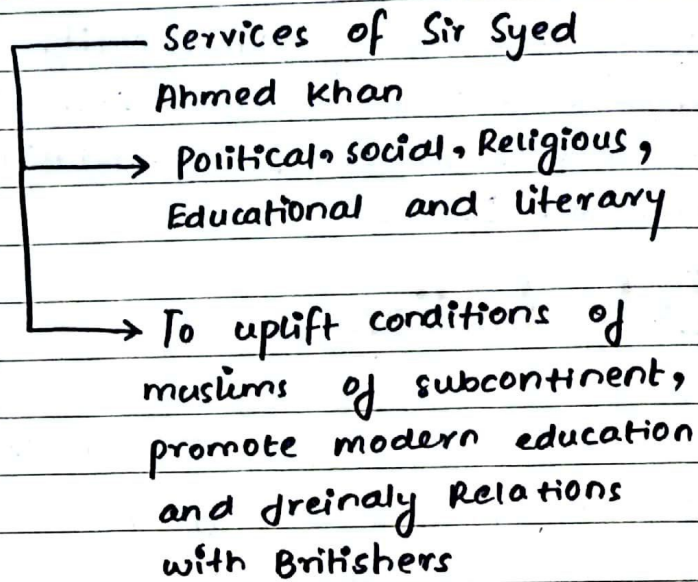 Services of Sir Syed
Ahmed Khan
Political, social, Religious,
Educational and literary
To uplift conditions of
muslims of subcontinent,
promote modern education
and freinaly Relations
with Britishers